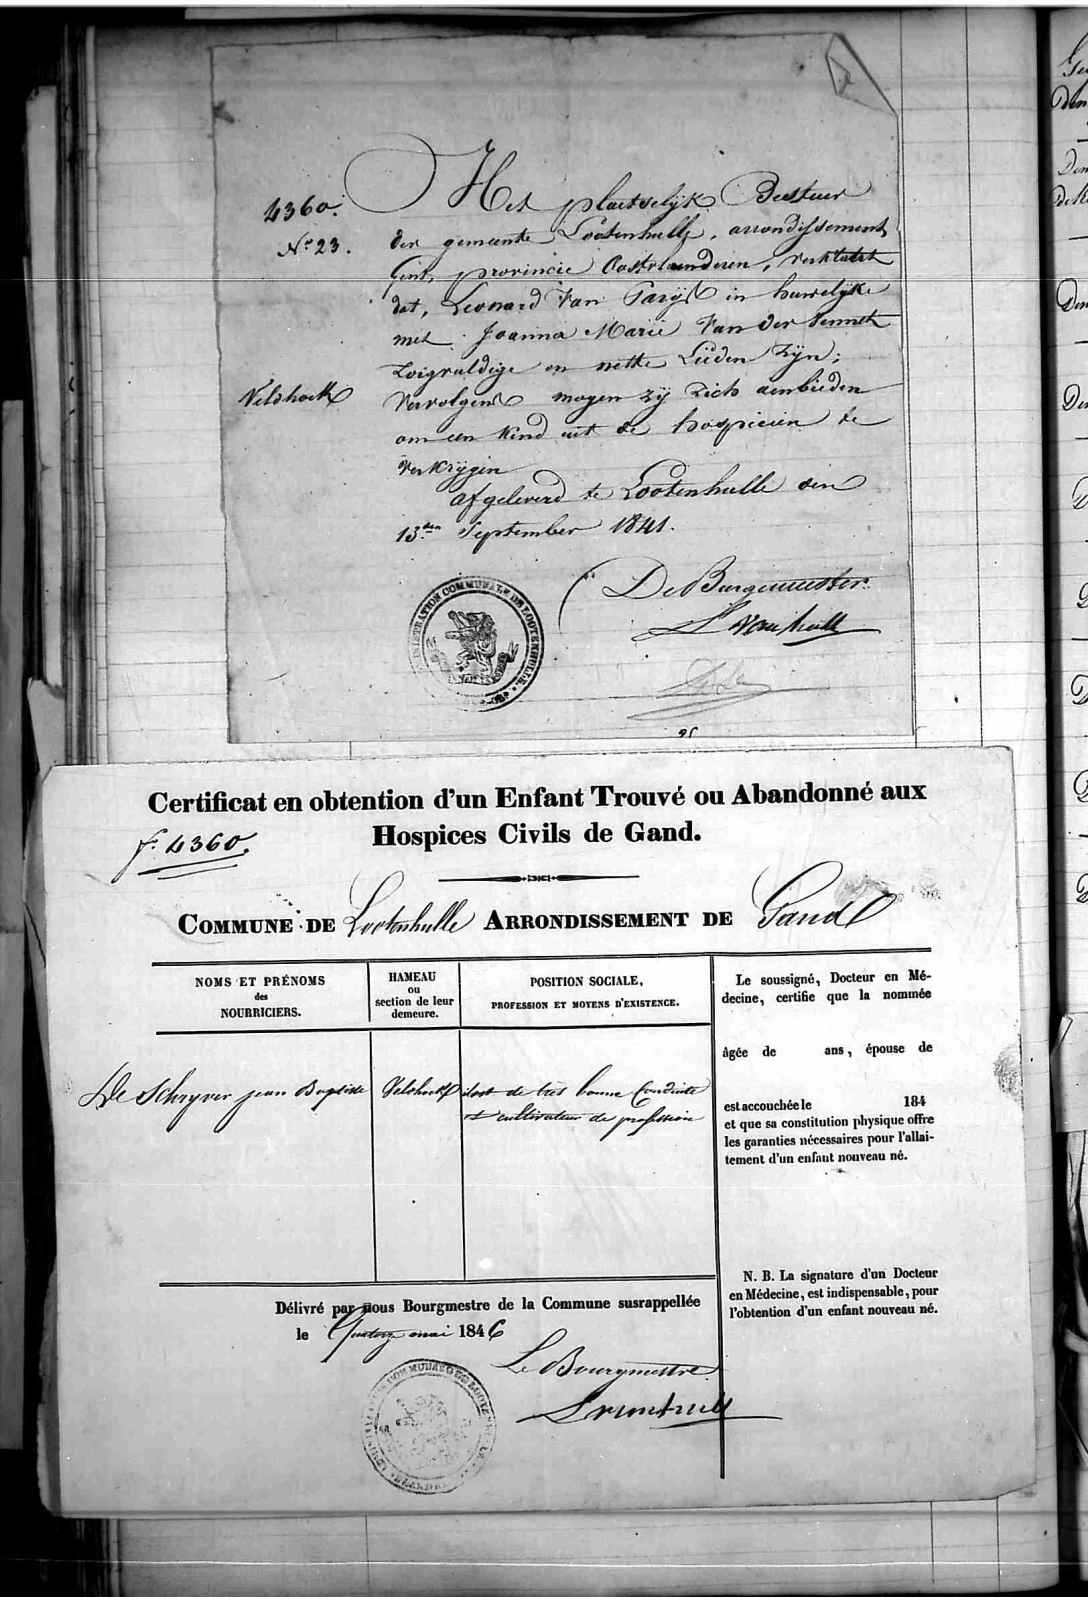 4360.
N.º 23.
Het plaetselyk Bestuur
der gemeente Lootenhulle, arrondissement
Gent, provincie Oostvlaanderen, verklaert
dat, Leonard Van Parÿs in huwelÿke
met Joanna Marie Van der Vennet
zorgvuldige en nette Lieden zÿn;
Veldhoek
vervolgens mogen zÿ zich aenbieden
om een kind uit de hospicien te
verkrÿgen
afgeleverd te Lootenhulle den
13.den September 1841.
De Burgemeester
ADMINISTRATION COMMUNALE DE LOOTENHULLE
Certificat en obtention d'un Enfant Trouvé ou Abandonné aux
Hospices Civils de Gand.
f. 4360.
COMMUNE DE Lootenhulle ARRONDISSEMENT DE Gand
NOMS ET PRÉNOMS
des
NOURRICIERS.
HAMEAU
ou
section de leur
demeure.
POSITION SOCIALE,
PROFESSION ET MOYENS D'EXISTENCE.
De Schryver jean Baptiste
Veldhoek
il est de très bonne Conduite
et cultivateur de profession
Le soussigné, Docteur en Mé-
decine, certifie que la nommée
âgée de ans, épouse de
est accouchée le 184
et que sa constitution physique offre
les garanties nécessaires pour l'allai-
tement d'un enfant nouveau né.
N. B. La signature d'un Docteur
en Médecine, est indispensable, pour
l'obtention d'un enfant nouveau né.
Délivré par nous Bourgmestre de la Commune susrappellée
le Quatorze mai 1846
Le Bourgmestre